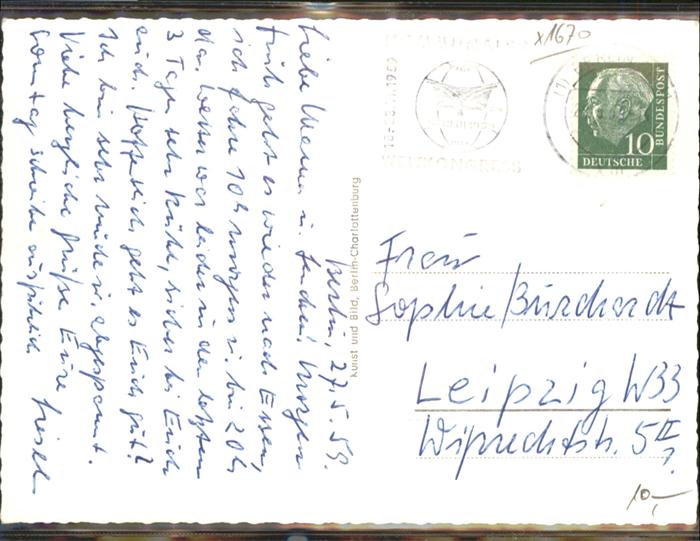 Berlin, 27.5.59.
Liebe Mama u. Lenchen! Morgen
früh geht es wieder nach Essen,
ich fahre 10h morgens u. bin 20h
da. Wetter war leider in den letzten
3 Tagen sehr kühl, sicher bei Euch
auch. Hoffentlich geht es Euch gut?
Ich bin sehr müde u. abgespannt.
Viele herzliche Grüße Eure Liesel
Sonntag schreibe ausführlich
Kunst und Bild, Berlin-Charlottenburg
x1670
WELTKONGRESS
10
DEUTSCHE
BUNDESPOST
Frau
Sophie Burchardt
Leipzig W33
Wiprechtstr. 5 II
10,-